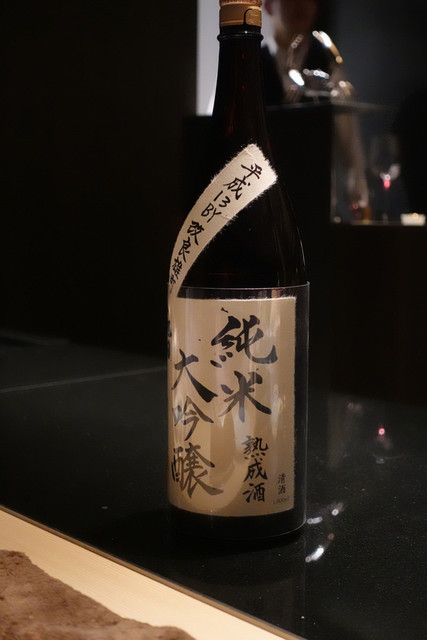 平成13BY 改良雄町
純米
大吟醸
熟成酒
清酒